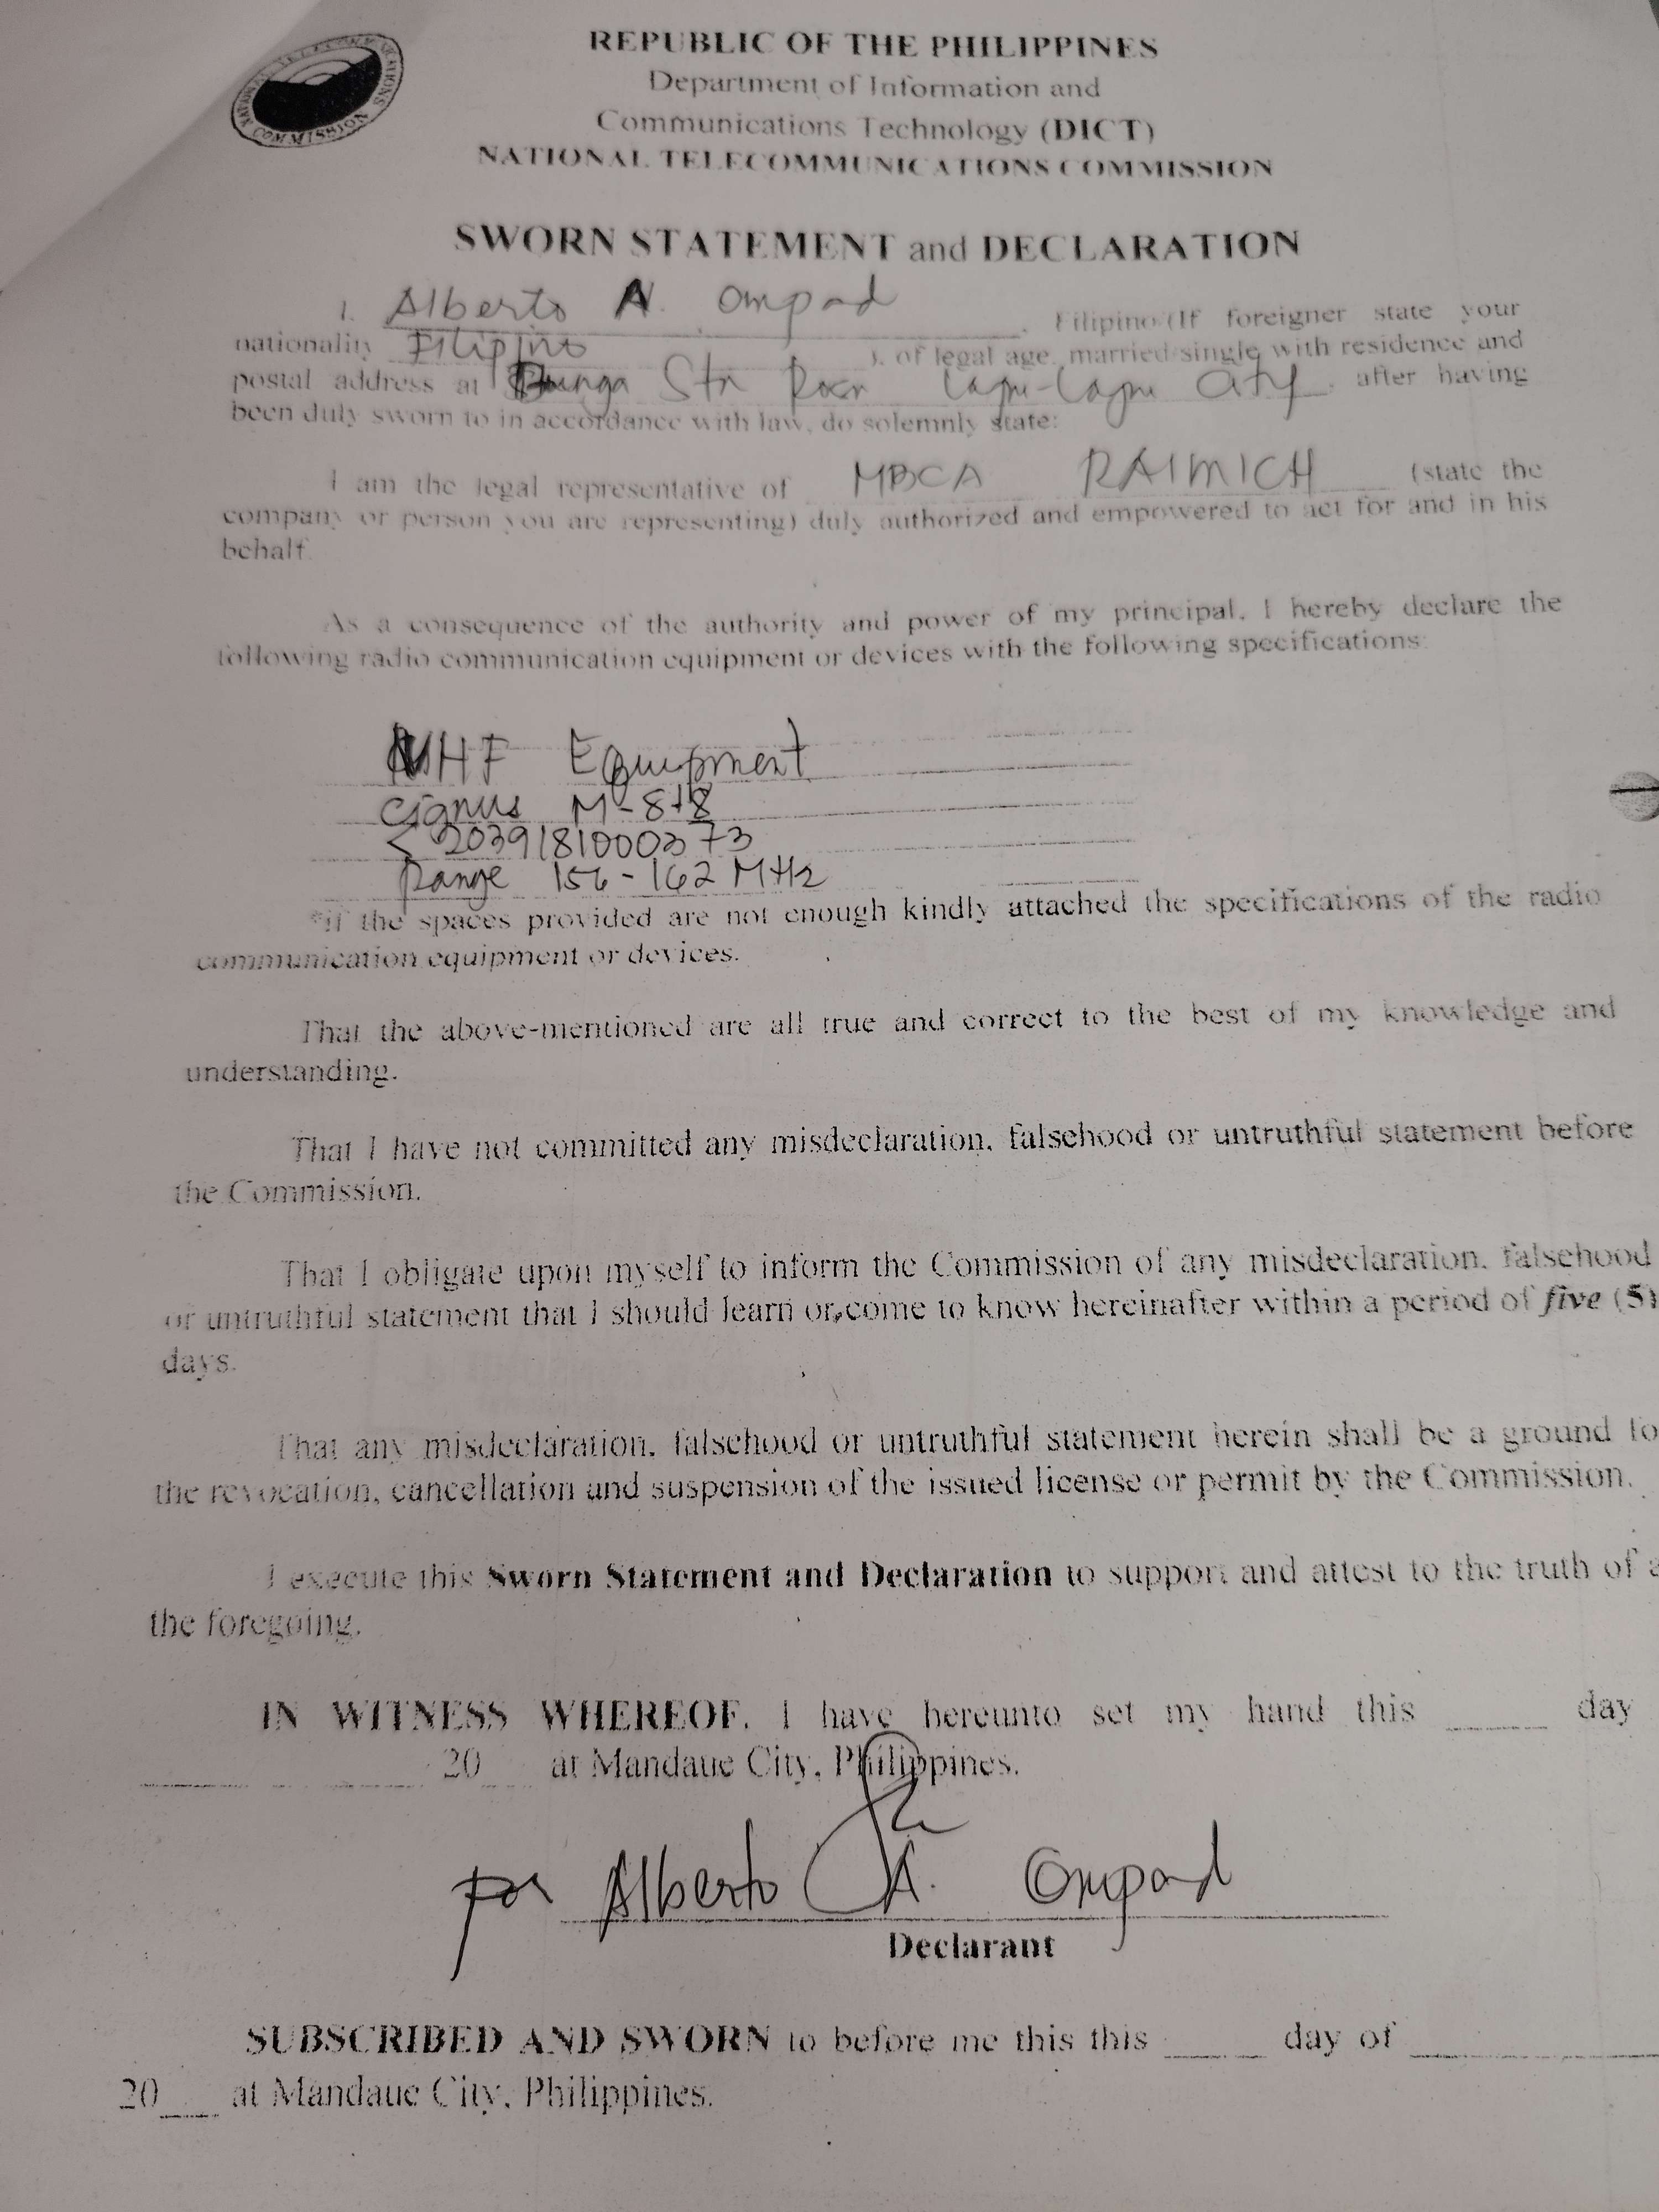 NATIONAL TELECOMMUNICATIONS COMMISSION
REPUBLIC OF THE PHILIPPINES
Department of Information and
Communications Technology (DICT)
NATIONAL TELECOMMUNICATIONS COMMISSION
SWORN STATEMENT and DECLARATION
I, Alberto A. Ompad, Filipino (If foreigner state your
nationality Filipino ), of legal age, married/single with residence and
postal address at Sta Rosa Lapu-Lapu City, after having
been duly sworn to in accordance with law, do solemnly state:
I am the legal representative of MBCA RAIMICH (state the
company or person you are representing) duly authorized and empowered to act for and in his
behalf.
As a consequence of the authority and power of my principal, I hereby declare the
following radio communication equipment or devices with the following specifications:
VHF Equipment
Cignus M-8+8
20391810003 73
Range 156-162 MHz
*if the spaces provided are not enough kindly attached the specifications of the radio
communication equipment or devices.
That the above-mentioned are all true and correct to the best of my knowledge and
understanding.
That I have not committed any misdeclaration, falsehood or untruthful statement before
the Commission.
That I obligate upon myself to inform the Commission of any misdeclaration, falsehood
or untruthful statement that I should learn or come to know hereinafter within a period of five (5)
days.
That any misdeclaration, falsehood or untruthful statement herein shall be a ground fo
the revocation, cancellation and suspension of the issued license or permit by the Commission.
I execute this Sworn Statement and Declaration to support and attest to the truth of a
the foregoing.
IN WITNESS WHEREOF, I have hereunto set my hand this ____ day
____ 20__ at Mandaue City, Philippines.
for Alberto A. Ompad
Declarant
SUBSCRIBED AND SWORN to before me this this ____ day of ____
20__ at Mandaue City, Philippines.